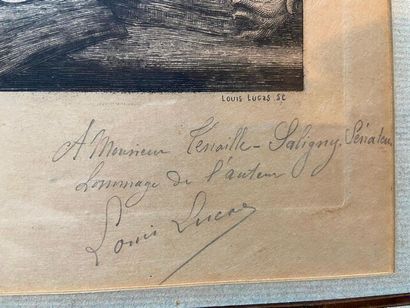 LOUIS LUCAS SC
A Monsieur Terraille-Saligny, Sénateur
Hommage de l'auteur
Louis Lucas